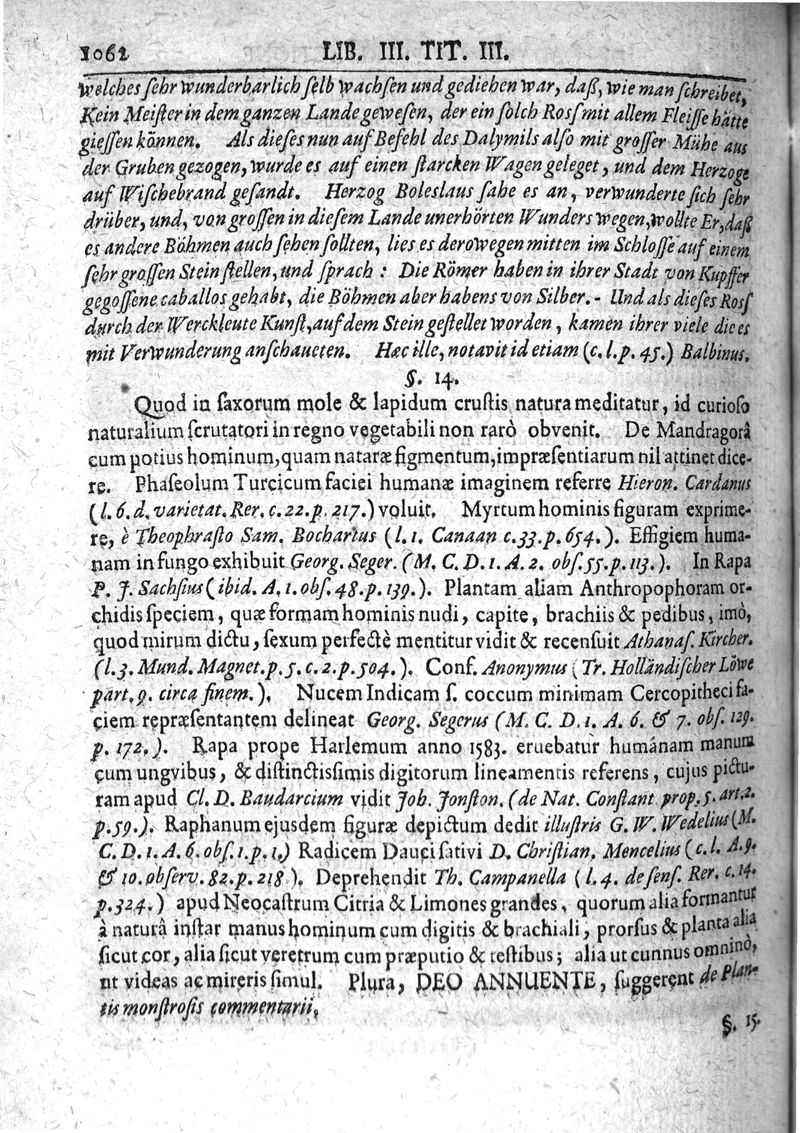 1062 LIB. III. TIT. III.
welches ſehr wunderbarlich ſelb wachſen und gediehen war, daß, wie man ſchreibet,
Kein Meiſter in dem ganzen Lande geweſen, der ein ſolch Roſs mit allem Fleiſſe hätte
gieſſen können. Als dieſes nun auf Befehl des Dalymils alſo mit groſſer Mühe aus
der Gruben gezogen, wurde es auf einen ſtarcken Wagen geleget, und dem Herzoge
auf Wiſchebrand geſandt. Herzog Boleslaus ſahe es an, verwunderte ſich ſehr
drüber, und, von groſſen in dieſem Lande unerhörten Wunders wegen, wollte Er, daß
es andere Böhmen auch ſehen ſollten, lies es derowegen mitten im Schloſſe auf einem
ſehr groſſen Stein ſtellen, und ſprach : Die Römer haben in ihrer Stadt von Kupffer
gegoſſene caballos gehabt, die Böhmen aber habens von Silber. - Und als dieſes Roſſ
durch der Werckleute Kunſt, auf dem Stein geſtellet worden, kamen ihrer viele die es
mit Verwunderung anſchaueten. Hæc ille, notavit id etiam (c. l. p. 45.) Balbinus.
§. 14.
Quod in ſaxorum mole & lapidum cruſtis natura meditatur, id curioſo
naturalium ſcrutatori in regno vegetabili non rarò obvenit. De Mandragorâ
cum potius hominum, quam nataræ figmentum, impræſentiarum nil attinet dice-
re. Phaſeolum Turcicum faciei humanæ imaginem referre Hieron. Cardanus
(l. 6. d. varietat. Rer. c. 22. p. 217.) voluit. Myrtum hominis figuram exprime-
re, è Theophraſto Sam. Bochartus (l. 1. Canaan c. 33. p. 654.). Effigiem huma-
nam in fungo exhibuit Georg. Seger. (M. C. D. 1. A. 2. obſ. 55. p. 113.). In Rapa
P. J. Sachſius (ibid. A. 1. obſ. 48. p. 139.). Plantam aliam Anthropophoram or-
chidis ſpeciem, quæ formam hominis nudi, capite, brachiis & pedibus, imò,
quod mirum dictu, ſexum perfectè mentitur vidit & recenſuit Athanaſ. Kircher.
(l. 3. Mund. Magnet. p. 5. c. 2. p. 504.). Conf. Anonymus (Tr. Holländiſcher Löwe
part. 9. circa finem.). Nucem Indicam ſ. coccum minimam Cercopitheci fa-
ciem repræſentantem delineat Georg. Segerus (M. C. D. 1. A. 6. & 7. obſ. 129.
p. 172.). Rapa prope Harlemum anno 1583. eruebatur humánam manum
cum ungvibus, & diſtinctiſſimis digitorum lineamentis referens, cujus pictu-
ram apud Cl. D. Baudarcium vidit Joh. Jonſton. (de Nat. Conſtant prop. 5. art. 2.
p. 59.). Raphanum ejusdem figuræ depictum dedit illuſtris G. W. Wedelius (M.
C. D. 1. A. 6. obſ. 1. p. 1.) Radicem Dauci ſativi D. Chriſtian. Mencelius (c. l. A. 9.
& 10. obſerv. 82. p. 218). Deprehendit Th. Campanella (l. 4. de ſenſ. Rer. c. 14.
p. 324.) apud Neocaſtrum Citria & Limones grandes, quorum alia formantur
à naturâ inſtar manus hominum cum digitis & brachiali, prorſus & planta alia
ſicut cor, alia ſicut veretrum cum præputio & teſtibus; alia ut cunnus omninò,
ut videas ac mireris ſimul. Plura, DEO ANNUENTE, ſuggerent de Plan-
tis monſtroſis commentarii.
§. 15.